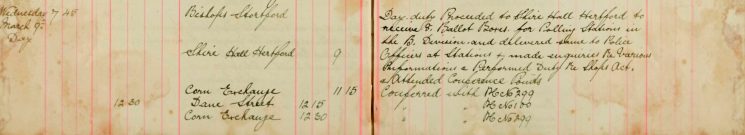 Wednesday 7 45 Bishops Stortford Day duty Proceeded to Shire Hall Hertford to
March 9th receive 7 Ballot Boxes for Polling Stations in
Day the B. Division and delivered same to Police
Shire Hall Hertford 9 Officers at Stations & made enquiries Re Various
Informations & Performed Duty Re Shops Act.
& Attended Conference Points
Corn Exchange 11 15 Conferred with PC No 299
12 30 Dane Street 12 15 " " PC No 100
Corn Exchange 12 30 " " PC No 299